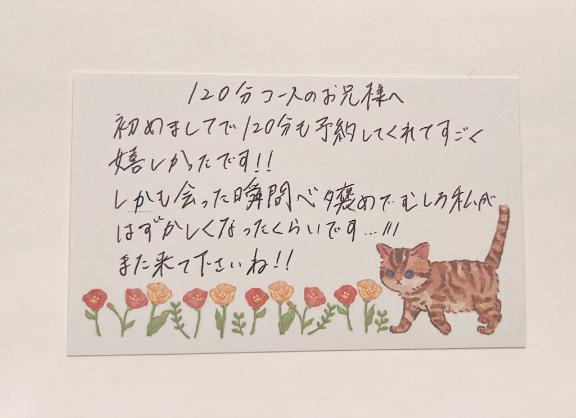 120分コースのお兄様へ
初めましてで120分も予約してくれてすごく
嬉しかったです!!
しかも会った瞬間ベタ褒めでむしろ私が
はずかしくなったくらいです...///
また来て下さいね!!